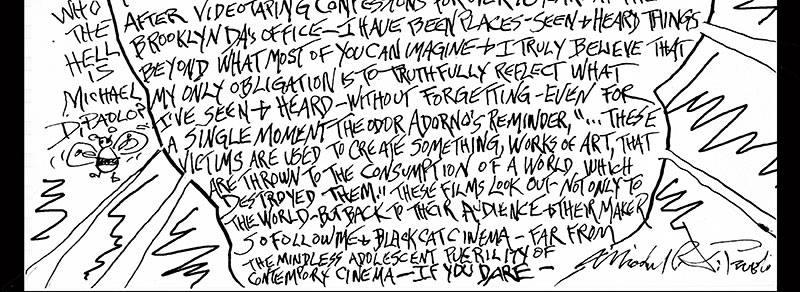 WHO
THE
HELL
IS
MICHAEL
DiPAOLO?
AFTER VIDEOTAPING CONFESSIONS FOR OVER 15 YEARS AT THE
BROOKLYN DA's OFFICE—I HAVE BEEN PLACES-SEEN & HEARD THINGS
BEYOND WHAT MOST OF YOU CAN IMAGINE & I TRULY BELIEVE THAT
MY ONLY OBLIGATION IS TO TRUTHFULLY REFLECT WHAT
I'VE SEEN & HEARD—WITHOUT FORGETTING-EVEN FOR
A SINGLE MOMENT THEODOR ADORNO'S REMINDER, "...THESE
VICTIMS ARE USED TO CREATE SOMETHING, WORKS OF ART, THAT
ARE THROWN TO THE CONSUMPTION OF A WORLD WHICH
DESTROYED THEM." THESE FILMS LOOK OUT- NOT ONLY TO
THE WORLD-BUT BACK TO THEIR AUDIENCE & THEIR MAKER
SO FOLLOW ME & BLACK CAT CINEMA - FAR FROM
THE MINDLESS ADOLESCENT PUERILITY OF
CONTEMPORY CINEMA—IF YOU DARE —
Michael DiPaolo